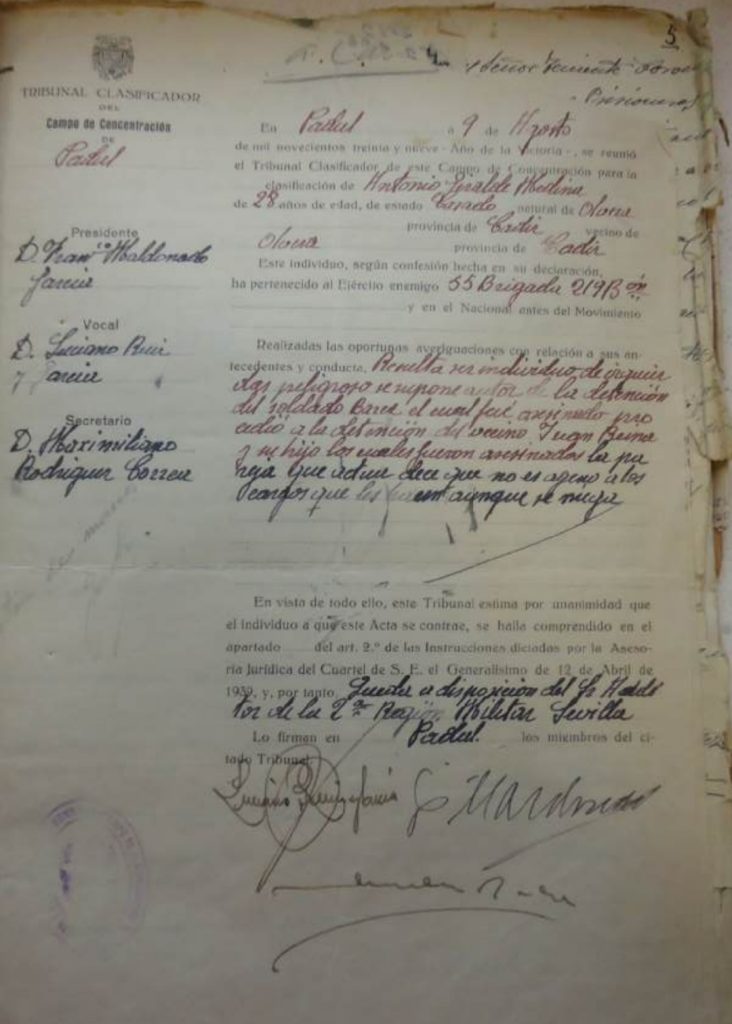 5
Señor Teniente
Prisioneros
TRIBUNAL CLASIFICADOR
DEL
Campo de Concentración
DE
Padul
Presidente
D. Franco Maldonado
Garcia
Vocal
D. Luciano Ruiz
y Garcia
Secretario
D. Maximiliano
Rodriguez Correa
En Padul a 9 de Agosto
de mil novecientos treinta y nueve - Año de la Victoria -, se reunió
el Tribunal Clasificador de este Campo de Concentración para la
clasificación de Antonio Giralde Medina
de 28 años de edad, de estado Casado natural de Olvera
provincia de Cadiz vecino de
Olvera provincia de Cadiz
Este individuo, según confesión hecha en su declaración,
ha pertenecido al Ejército enemigo 55 Brigada 219 Bón
y en el Nacional antes del Movimiento
Realizadas las oportunas averiguaciones con relación a sus an-
tecedentes y conducta, Resulta ser individuo de izquier
das peligroso se supone autor de la detención
del soldado Barea el cual fué asesinado pro
cedió a la detención del vecino Juan
y su hijo los cuales fueron asesinados la pa
reja que actua dice que no es ageno a los
cargos que les hacen aunque se niega
En vista de todo ello, este Tribunal estima por unanimidad que
el individuo a que este Acta se contrae, se halla comprendido en el
apartado del art. 2.º de las Instrucciones dictadas por la Aseso-
ría Jurídica del Cuartel de S. E. el Generalísimo de 12 de Abril de
1939, y, por tanto, Queda a disposicion del Sr Audi
tor de la 2ª Región Militar Sevilla
Lo firman en Padul. los miembros del ci-
tado Tribunal
Luciano Ruiz Garcia